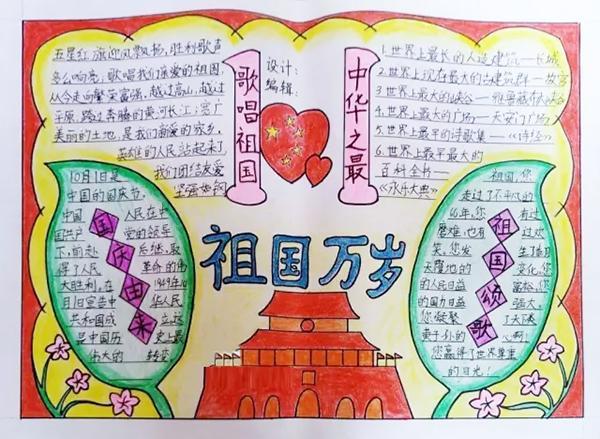 五星红旗迎风飘扬,胜利歌声
多么响亮,歌唱我们亲爱的祖国,
从今走向繁荣富强,越过高山,越过
平原,跨过奔腾的黄河长江;宽广
美丽的土地,是我们亲爱的家乡,
英雄的人民站起来了
我们团结友爱
坚强如钢
歌唱祖国
设计:
编辑:
中华之最
1.世界上最长的人造建筑——长城
2.世界上现存最大的古建筑群——故宫
3.世界上最大的峡谷——雅鲁藏布大峡谷
4.世界上最大的广场——天安门广场
5.世界上最早的诗歌集——《诗经》
6.世界上最早最大的
百科全书——
《永乐大典》
祖国万岁
10月1日是
中国的国庆节,
中国 人民在中
国共产 党的领导
下,前赴 后继,取
得了人民 革命的伟
大胜利,在 1949年10
月1日宣告中 华人民
共和国成 立,这
是中国历 史上最
伟大的 转变
国庆由来
祖国,您
走过了不平凡的
66年,您 有过
磨难,也有 过欢
笑,您发 生了翻
天覆地的 变化,您
的人民日益 富裕,您
的国力日益 强大,
您凝聚 了天下炎
黄子孙的 心啊!
您赢得了世界尊重
的目光!
祖国颂歌